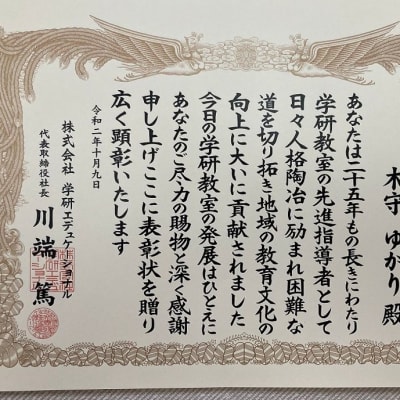 木守 ゆかり 殿
あなたは二十五年もの長きにわたり
学研教室の先進指導者として
日々人格陶冶に励まれ困難な
道を切り拓き地域の教育文化の
向上に大いに貢献されました
今日の学研教室の発展はひとえに
あなたのご尽力の賜物と深く感謝
申し上げここに表彰状を贈り
広く顕彰いたします
令和二年十月九日
株式会社 学研エデュケーショナル
代表取締役社長 川端 篤